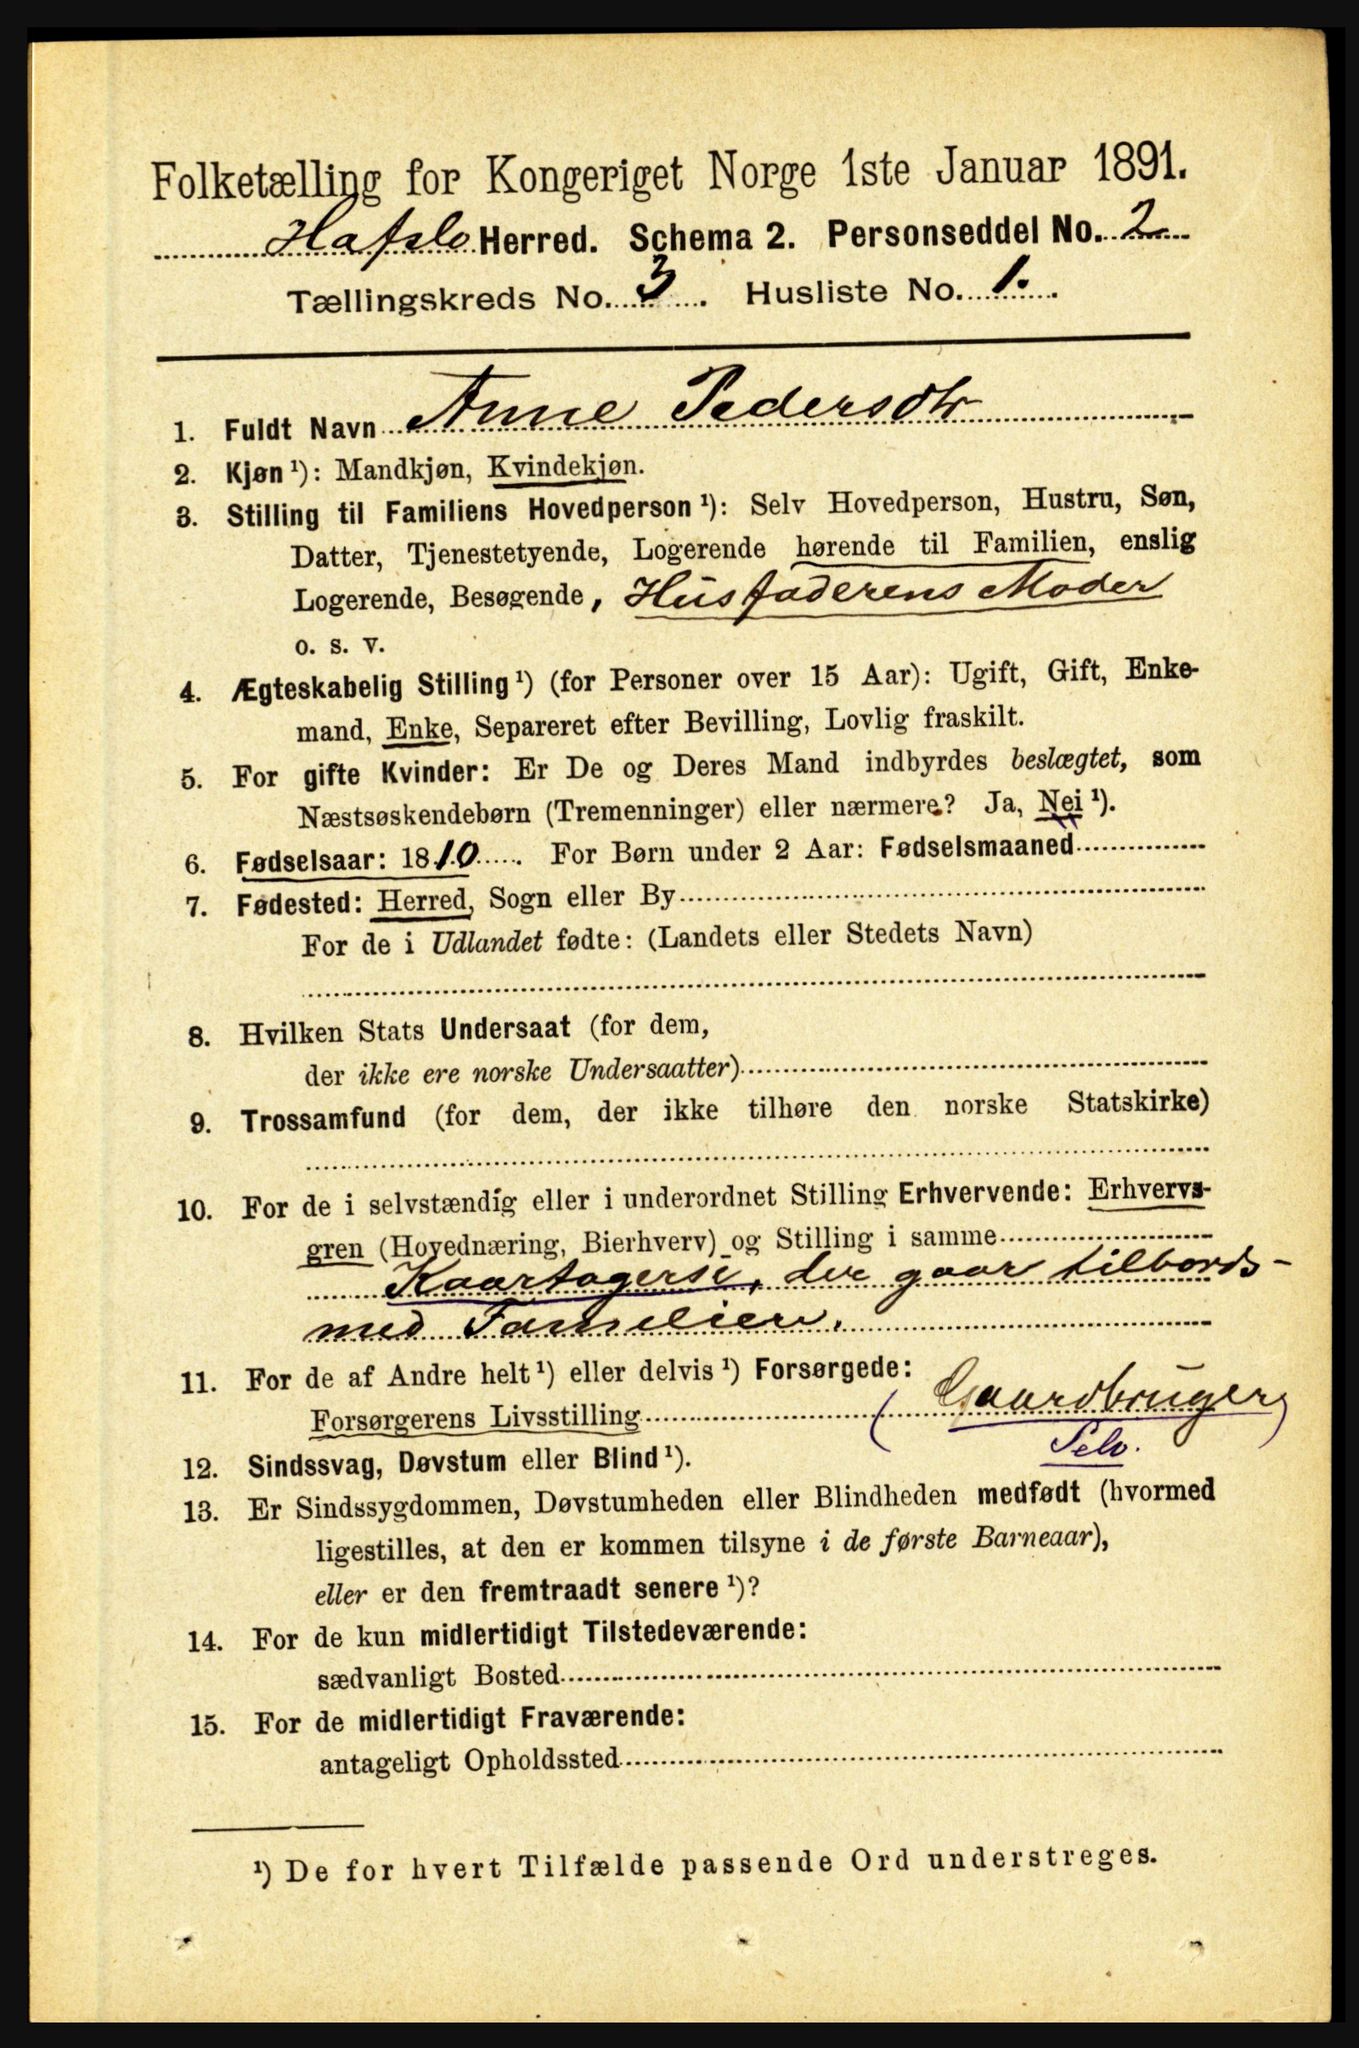 Folketælling for Kongeriget Norge 1ste Januar 1891.
Hafslo Herred. Schema 2. Personseddel No. 2
Tællingskreds No. 3. Husliste No. 1.
1. Fuldt Navn Anne Pedersdtr
2. Kjøn ¹): Mandkjøn, Kvindekjøn.
3. Stilling til Familiens Hovedperson ¹): Selv Hovedperson, Hustru, Søn,
Datter, Tjenestetyende, Logerende hørende til Familien, enslig
Logerende, Besøgende, Husfaderens Moder
o. s. v.
4. Ægteskabelig Stilling ¹) (for Personer over 15 Aar): Ugift, Gift, Enke-
mand, Enke, Separeret efter Bevilling, Lovlig fraskilt.
5. For gifte Kvinder: Er De og Deres Mand indbyrdes beslægtet, som
Næstsøskendebørn (Tremenninger) eller nærmere? Ja, Nei ¹).
6. Fødselsaar: 1810. For Børn under 2 Aar: Fødselsmaaned
7. Fødested: Herred, Sogn eller By
For de i Udlandet fødte: (Landets eller Stedets Navn)
8. Hvilken Stats Undersaat (for dem,
der ikke ere norske Undersaatter)
9. Trossamfund (for dem, der ikke tilhøre den norske Statskirke)
10. For de i selvstændig eller i underordnet Stilling Erhvervende: Erhvervs-
gren (Hovednæring, Bierhverv) og Stilling i samme
Kaartagerse, der gaar tilbords-
med Familien.
11. For de af Andre helt ¹) eller delvis ¹) Forsørgede:
Forsørgerens Livsstilling (Gaardbruger)
Selv.
12. Sindssvag, Døvstum eller Blind ¹).
13. Er Sindssygdommen, Døvstumheden eller Blindheden medfødt (hvormed
ligestilles, at den er kommen tilsyne i de første Barneaar),
eller er den fremtraadt senere ¹)?
14. For de kun midlertidigt Tilstedeværende:
sædvanligt Bosted
15. For de midlertidigt Fraværende:
antageligt Opholdssted
¹) De for hvert Tilfælde passende Ord understreges.